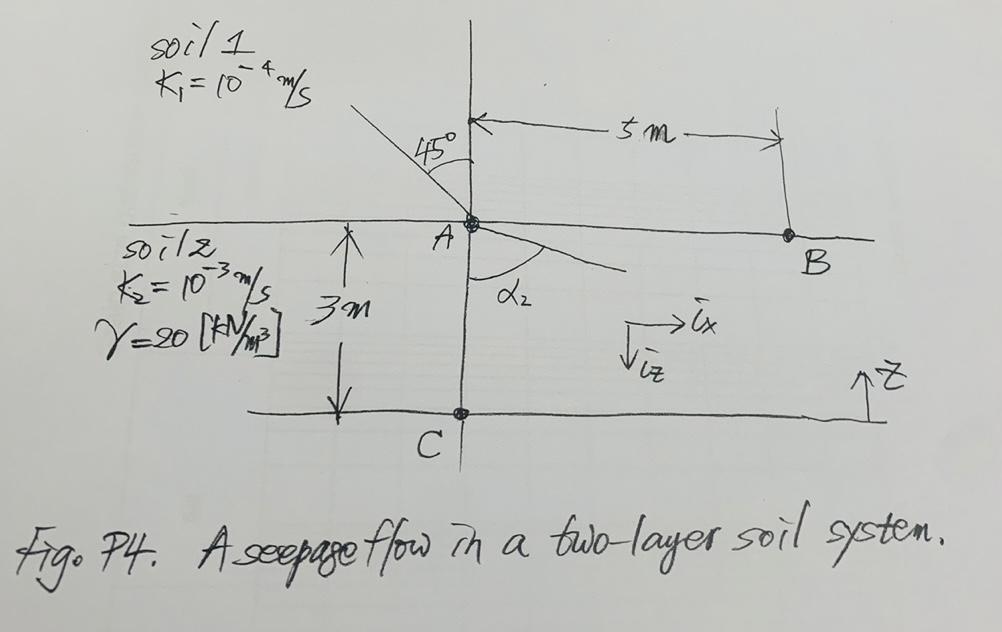 soil 1
K₁ = 10⁻⁴ m/s
45°
5 m
A
B
soil 2
K₂ = 10⁻³ m/s
γ = 20 [kN/m³]
3m
α₂
iₓ
i_z
Z
C
Fig. P4. A seepage flow in a two-layer soil system.